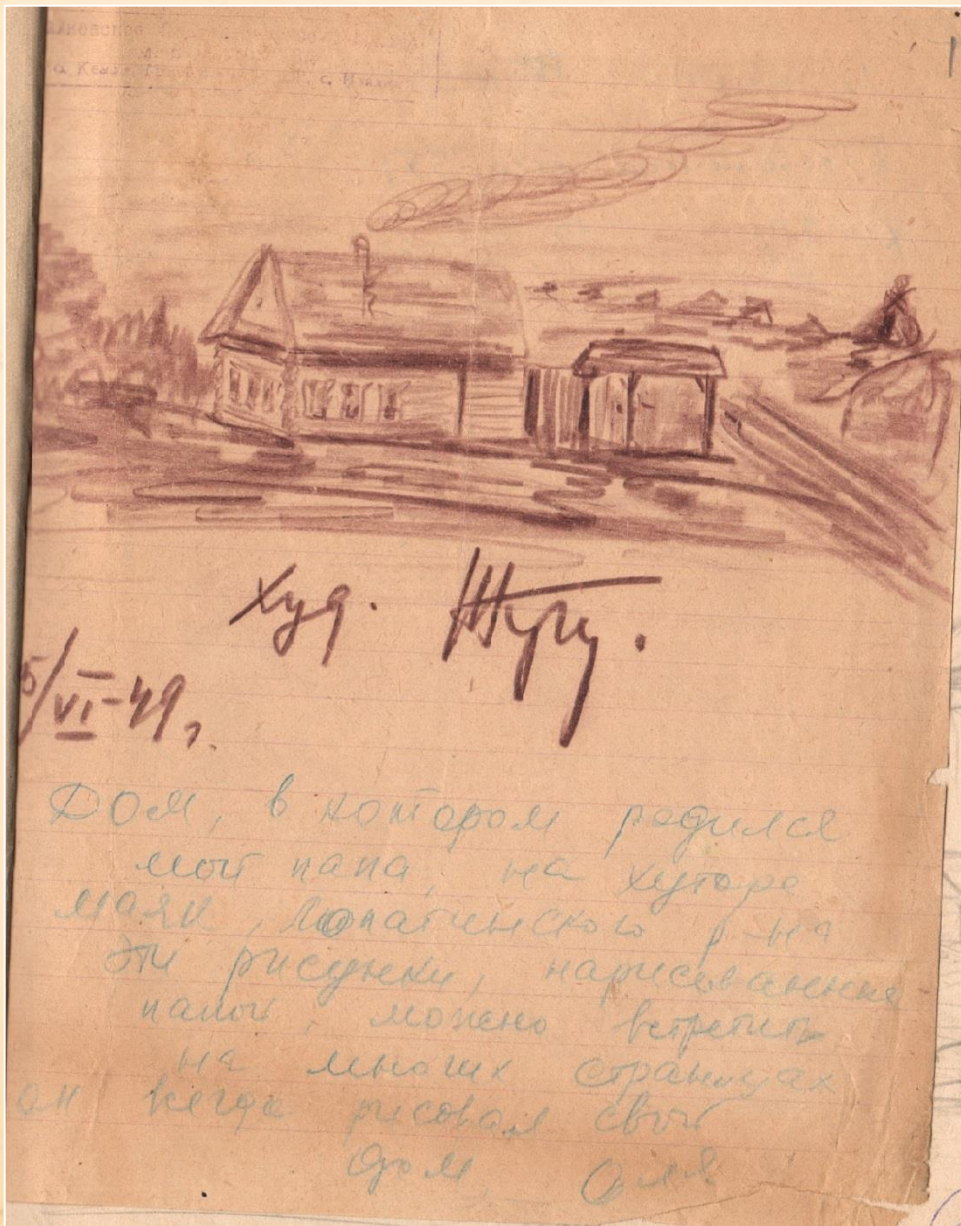 худ.
5/VI-49 г.
Дом, в котором родился
мой папа, на хуторе
маяк, Лопатинского р-на
Эти рисунки, нарисованные
папой, можно встретить
на многих страницах
он всегда рисовал свой
дом Оля